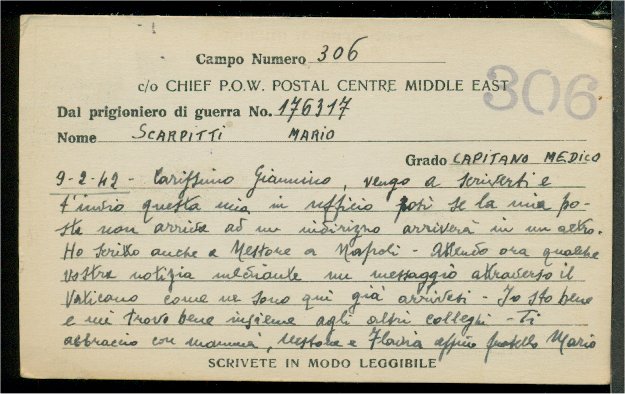 Campo Numero 306
306
c/o CHIEF P.O.W. POSTAL CENTRE MIDDLE EAST
Dal prigioniero di guerra No. 176317
Nome SCARPITTI MARIO
Grado CAPITANO MEDICO
9-2-42 - Carissimo Giannino, vengo a scriverti e
t'invio questa mia in ufficio così se la mia po-
sta non arriva ad un indirizzo arriverà in un altro.
Ho scritto anche a Nestore a Napoli - Attendo ora qualche
vostra notizia mediante un messaggio attraverso il
Vaticano come ne sono qui già arrivati - Io sto bene
e mi trovo bene insieme agli altri colleghi - Ti
abbraccio con mamma, Nestore e Flavia affmo fratello Mario
SCRIVETE IN MODO LEGGIBILE